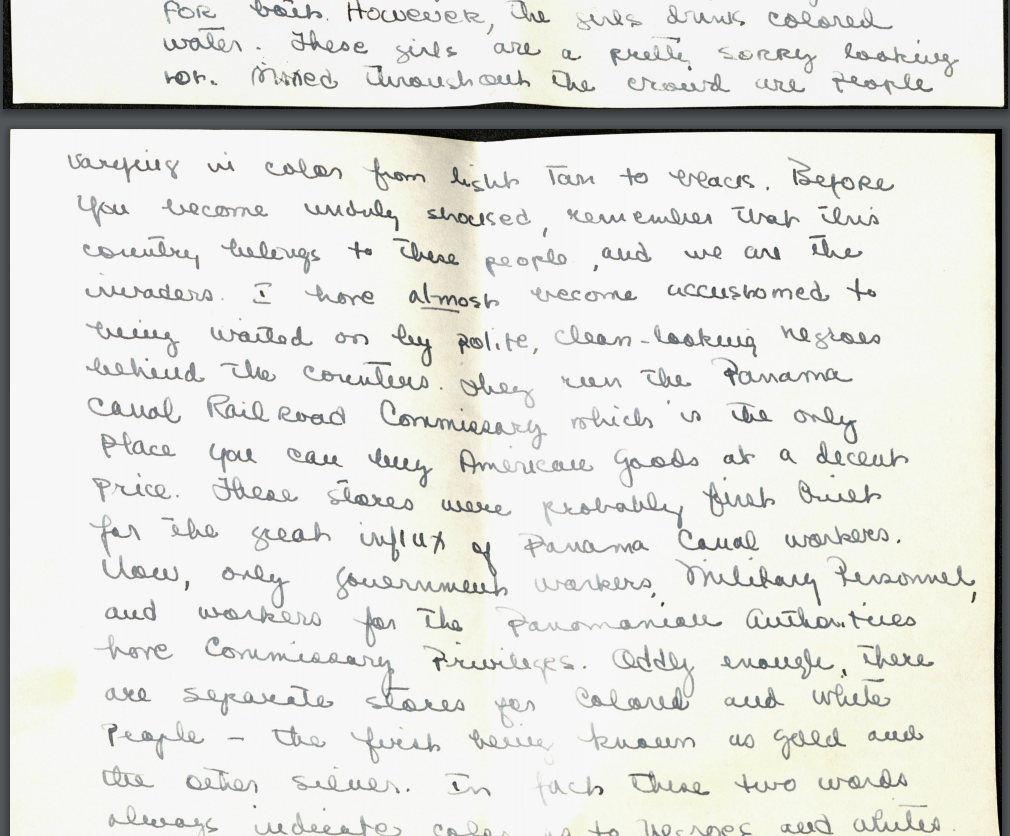 for both. However, the girls drink colored
water. These girls are a pretty sorry looking
lot. Mixed throughout the crowd are people
varying in color from light tan to black. Before
you become unduly shocked, remember that this
country belongs to these people, and we are the
invaders. I have almost become accustomed to
being waited on by polite, clean-looking negroes
behind the counters. They run the Panama
Canal Railroad Commissary which is the only
place you can buy American goods at a decent
price. These stores were probably first built
for the great influx of Panama Canal workers.
Now, only government workers, Military Personnel,
and workers for the Panamanian Authorities
have Commissary Privileges. Oddly enough, there
are separate stores for Colored and white
People – the first being known as gold and
the other silver. In fact these two words
always indicate color as to Negroes and whites.